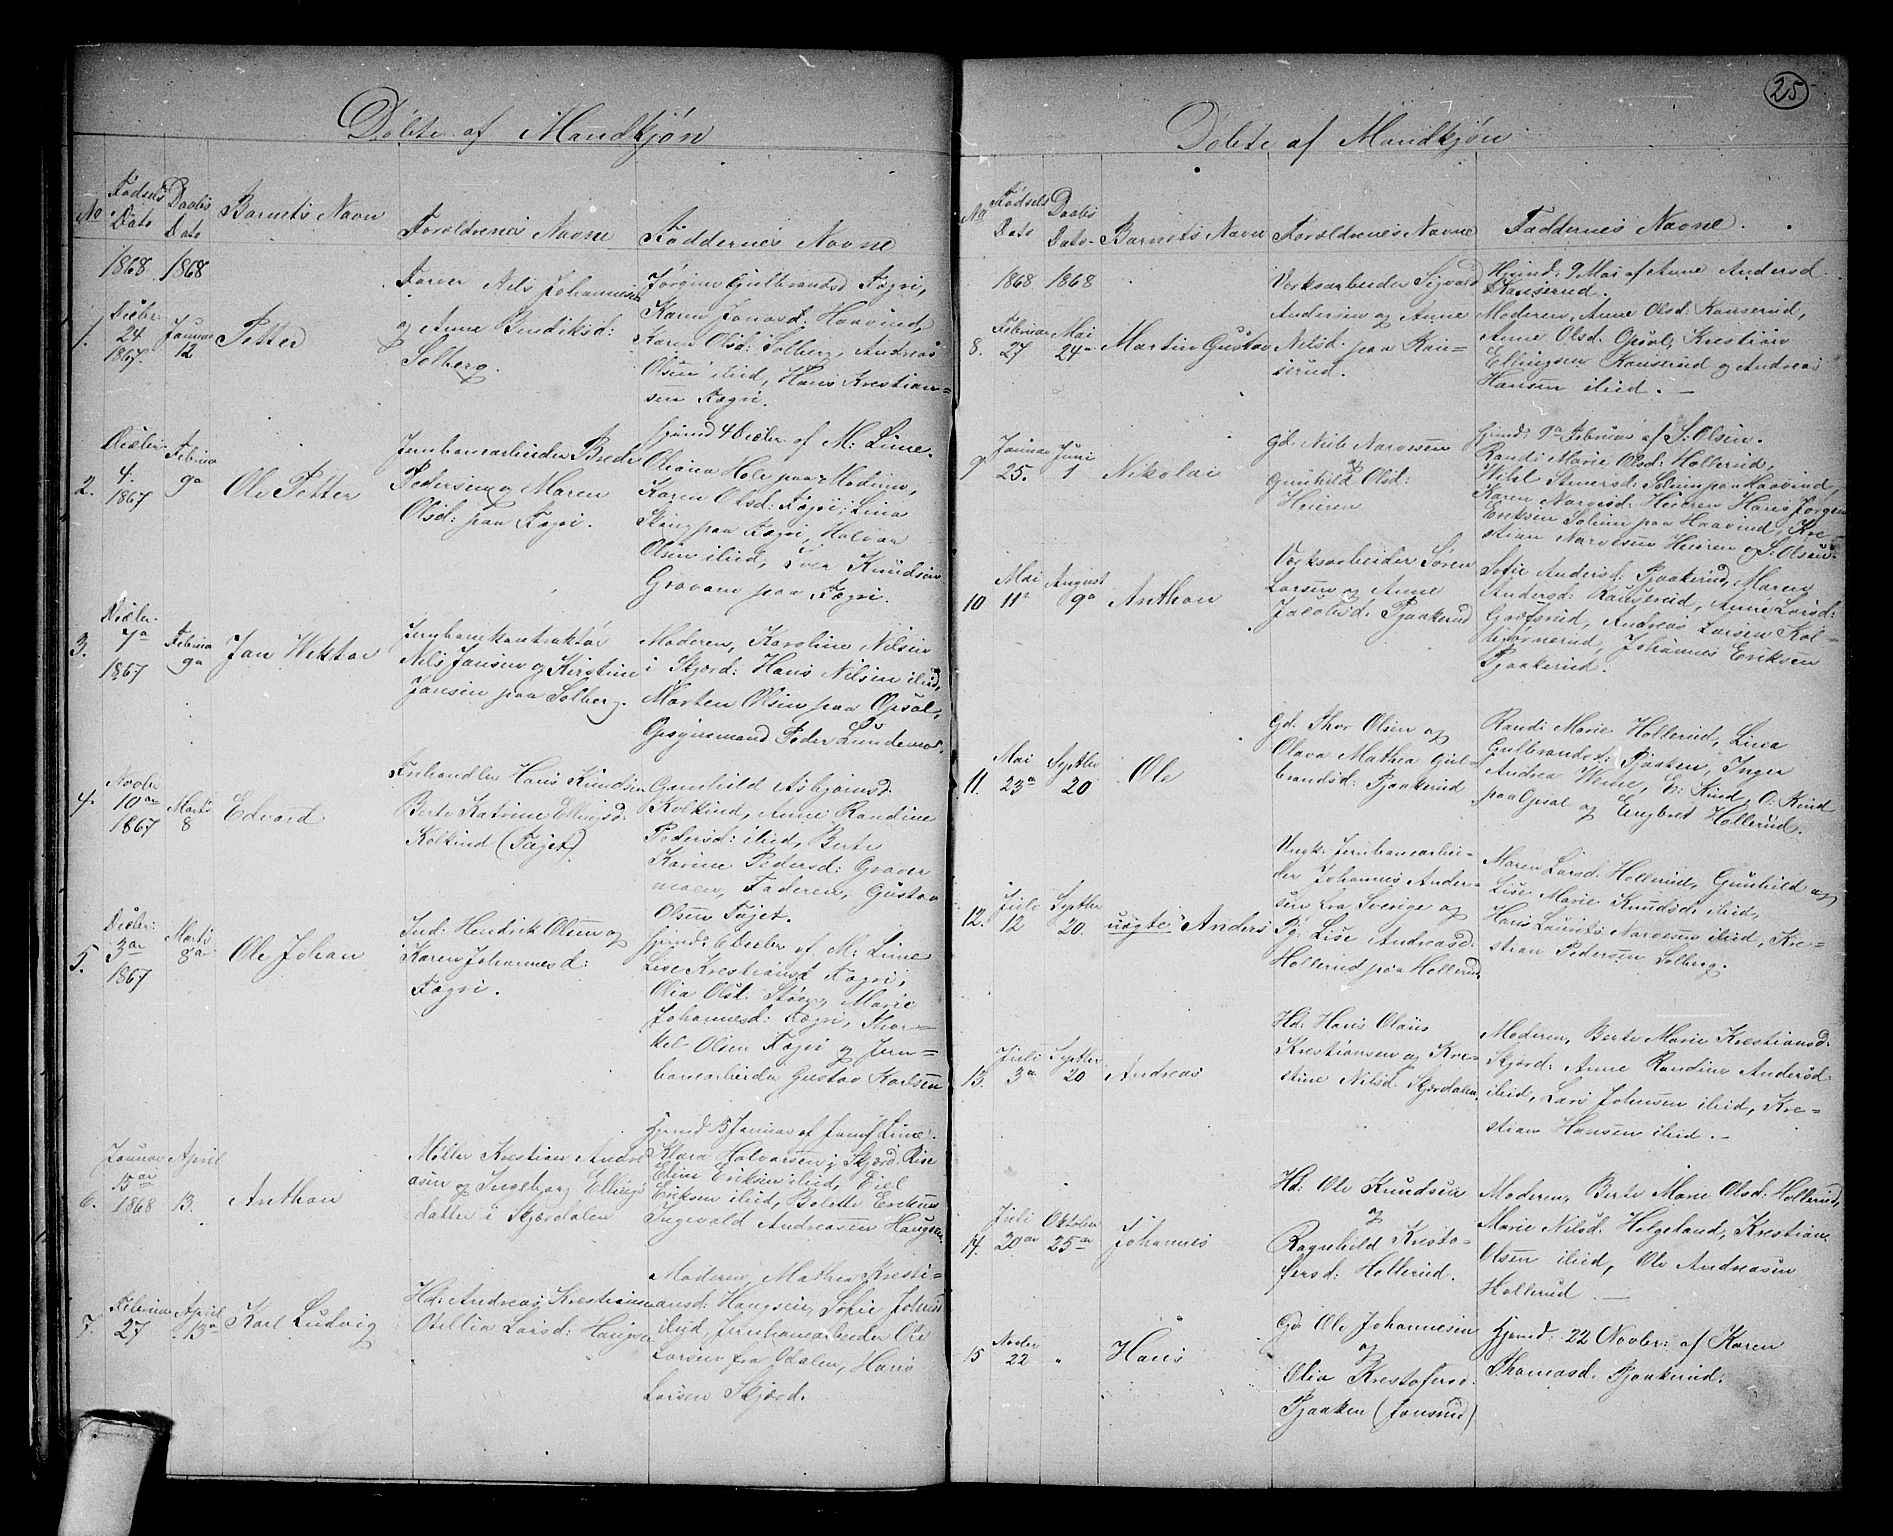 25
Døbte af Mandkjøn
No
Fødsels Dato
Daabs Dato
Barnets Navn
Foreldrenes Navne
Faddernes Navne
1868 1868
1.
Decbr: 24 1867.
Januar 12
Petter
Farver Nils Johannesen
og Anne Bendiksd:
Solberg.
Jørgine Gulbrandsd Fægri,
Karen Jonasd: Haavind,
Karen Olsd: Solberg, Andreas
Olsen ibid, Hans Krestian-
sen Fægri.
2.
Decbr: 4. 1867
Februar 9a
Ole Petter
Jernbanearbeider Brede
Pedersen og Maren
Olsd: paa Fægri.
hjemd 4 Decbr. af M: Lime.
Oliana Hole paa Modum,
Karen Olsd: Fægri, Lina
Stang paa Fægri, Halvor
Olsen ibid, Iver Knudsen
Gravem paa Fægri.
3.
Decbr: 7de 1867
Februar 9a
Jan Wektor
Jernbanekontraktør
Nils Jansen og Kirstine
Jansen paa Solberg.
Moderen, Karoline Nilsen
i Skjærd: Hans Nilsen ibid,
Morten Olsen paa Opsal,
Peder Lundemo.
4.
Novbr 10de 1867
Marts 8
Edvard
Hans Knudsen
Berte Katrine Ellingsd.
Kolkind (Fajet).
Gunhild Asbjørnsd:
Kolkind, Anne Randine
Pedersd: ibid, Berte
Karine Pedersd: Graver
moen, Faderen, Gustav
Olsen Fajet.
5.
Decbr: 3de 1867
Marts 8de
Ole Johan
Ind: Hendrik Olsen og
Karen Johannesd:
Fægri.
hjemd: 6 Decbr af M: Lime
Lise Krestiansd Fægri,
Olia Olsd: Støen, Marie
Johannesd: Fægri, Thor-
kel Olsen Fægri og Jern-
banearbeider Gustav Karlsen
6.
Januar 15de 1868
April 13.
Anthon
Møller Krestian Andre
asen og Ingeborg Ellings
datter i Skjærdalen
Hjemd 15 Januar af Lime.
Klara Halvorsen i Skjærd: Rise
Edin Eriksen ibid,
Eriksen ibid, Bolette Eriksen
Ingevald Andreassen Haugsen.
7.
Februar 27
April 13a
Karl Ludvig
Hd: Andreas Krestiansen
Otellia Larsd: Haugsen
Moderen, Mathea Kresti-
ansd: Haugsen, Sofie Johnsd
ibid, Jernbanearbeider Ole
Larsen fra Odalen, Hans
Larsen Skjærd.
Døbte af Mandkjøn
No
Fødsels Dato
Daabs Dato
Barnets Navn
Foreldrenes Navne
Faddernes Navne.
1868 1868
8.
Februar 27
Mai 24de
Martin Gustav
Værksarbeider Sigvald
Andersen og Anne
Nilsd. paa Kan-
serud.
Hjemd: 9 Mai af Anne Andersd.
Kanserud.
Moderen, Anne Olsd: Kanserud,
Anne Olsd. Opsal, Krestian
Ellingsen Kanserud og Andreas
Hansen ibid.
9
Januar 25.
Juni 1
Nikolai
gd. Niels Narvesen
og
Gunhild Olsd:
Heieren
hjemd: 9de Februar af S: Olsen.
Randi Marie Olsd: Hollerud,
Steners: Solum paa Haavind,
Karen Narvesd: Heieren Hans Jørgen
Eriksen Solum paa Haavind, Kre-
stian Narvesen Heieren og S: Olsen.
10
Mai 11te
August 9de
Anthon
Værksarbeider Søren
Larsen og Anne
Jacobsd: Pjaakerud
Sofie Andersd: Pjaakerud, Maren
Andersd: Kanserud, Anne Larsd:
Grøfsrud, Andreas Larsen Kol-
bjørnerud, Johannes Eriksen
Pjaakerud.
11.
Mai 23de
Septbr 20
Ole
Gd. Thor Olsen og
Olava Mathea Gul-
brandsd: Pjaakerud
Randi Marie Hollerud, Lina
Gulbrandsd: Pjaaken, Inger
Andrea Weme, E: Kind, O: Kind
paa Opsal og Engbret Hollerud.
12.
Juli 12
Septbr 20.
uægte Anders
Ungk: Jernbanearbei-
der Johannes Ander-
sen fra Sverige og
Pg: Lise Andreasd.
Hollerud paa Hollerud
Maren Larsd: Hollerud, Gunhild og
Lise Marie Knudsd: ibid,
Hans Laurits Narvesen ibid, Kre-
stian Pedersen Solberg.
13.
Juli 3de
Septbr 20
Andreas
Hd: Hans Olaus
Krestiansen og Kre-
stine Nilsd: Skjærdalen.
Moderen, Berte Marie Krestiansd:
Skjærd: Anne Randine Andersd:
ibid, Lars Johnsen ibid, Kre-
stian Hansen ibid.
14.
Juli 20de
Oktober 25de
Johannes
Hd: Ole Knudsen
og
Ragnhild Kresto-
fersd: Hollerud.
Moderen, Berte Marie Olsd: Hollerud,
Marie Nilsd: Helgeland, Krestian
Olsen ibid, Ole Andreasen
Hollerud.
15
Novbr 22
"
Hans
Gd: Ole Johannesen
og
Olia Krestofersd.
Pjaaken (Jonsrud)
Hjemd: 22 Novbr: af Karen
Thomasd: Pjaakerud.